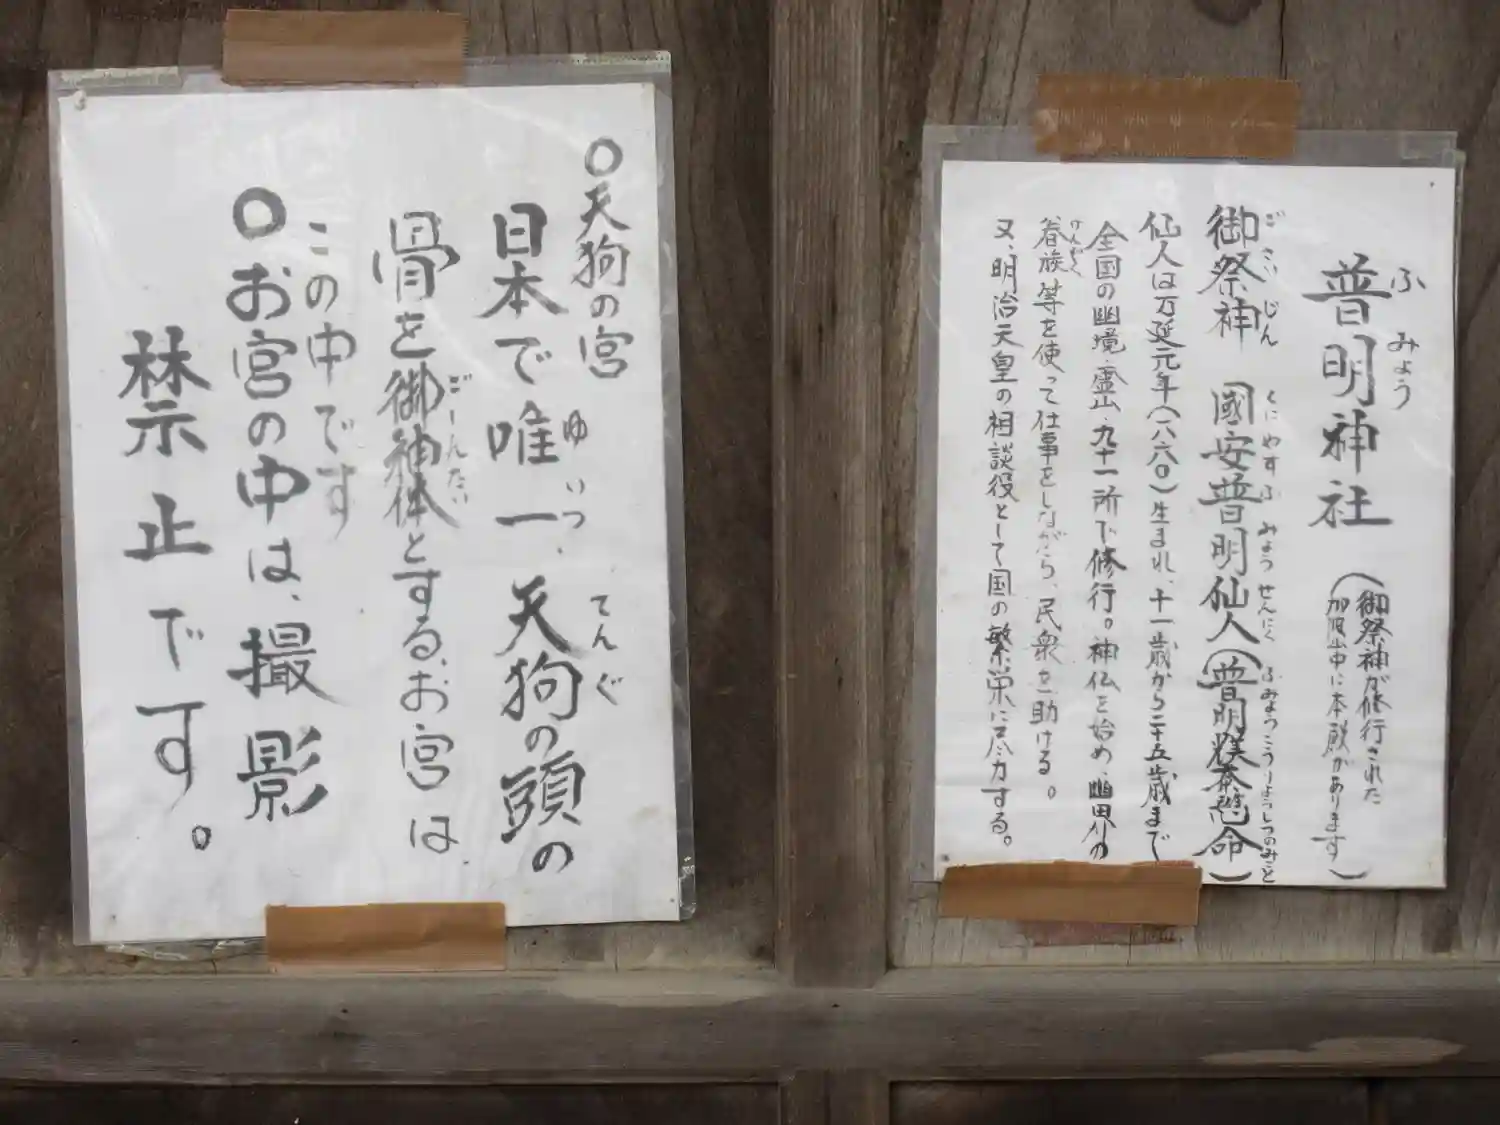 ○天狗の宮
日本で唯一、天狗の頭の
ゆいつ
てんぐ
骨を御神体とする、お宮は
ごーしんたい
この中です
○お宮の中は、撮影
禁止です。
普明神社
ふみょう
(御祭神が修行された
加波山中に本殿があります)
御祭神 國安普明仙人
ごさいじん くにやすふみょうせんにく ふみょうこうりようしつのみこと
仙人は万延元年(一八六〇)生まれ、十一歳から二十五歳まで
全国の幽境・霊山九十一所で修行。神仏を始め、幽界の
眷族等を使って仕事をしながら、民衆を助ける。
けんぞく
又、明治天皇の相談役として国の繁栄に尽力する。